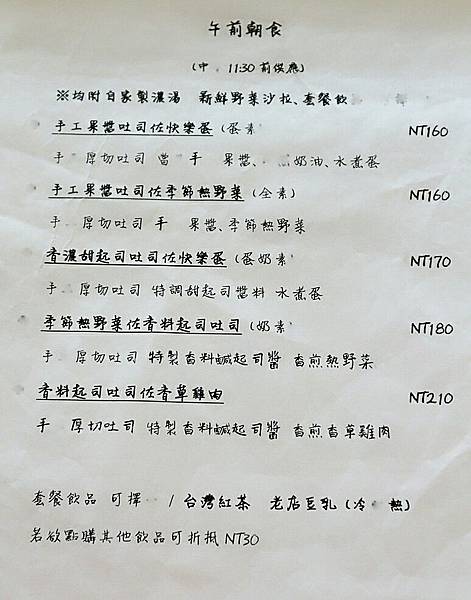 午前朝食
(中 11:30前供應)
※均附自家製濃湯 新鮮野菜沙拉、套餐飲
手工果醬吐司佐快樂蛋(蛋素 NT160
手 厚切吐司 當 手 果醬、 奶油、水煮蛋
手工果醬吐司佐季節熱野菜(全素) NT160
手 厚切吐司 手 果醬、季節熱野菜
香濃甜起司吐司佐快樂蛋(蛋奶素 NT170
手 厚切吐司 特調甜起司醬料 水煮蛋
季節熱野菜佐香料起司吐司(奶素 NT180
手 厚切吐司 特製香料鹹起司醬 香煎熱野菜
香料起司吐司佐香草雞肉 NT210
手 厚切吐司 特製香料鹹起司醬 香煎香草雞肉
套餐飲品 可擇 / 台灣紅茶 老店豆乳(冷 熱)
若欲點購其他飲品可折抵NT30